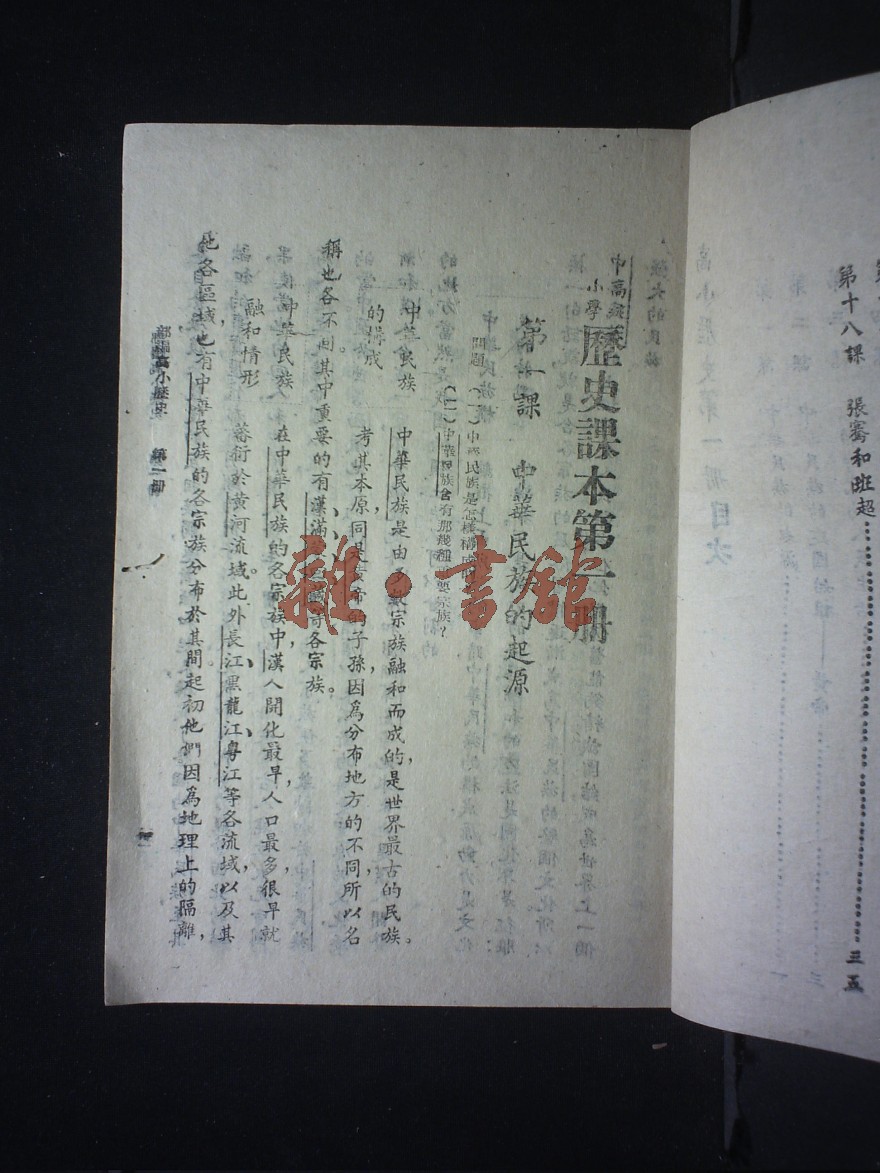 第十八課 張騫和班超……三五
高級
小學 歷史課本第一册
第一課 中華民族的起源
問題 (一)中華民族是怎樣構成的
(二)中華民族含有那幾種重要宗族?
中華民族
的構成
中華民族是由多數宗族融和而成的,是世界最古的民族。
考其本原,同是黃帝的子孫,因爲分布地方的不同,所以名
稱也各不同。其中重要的有漢滿蒙回藏等各宗族。
中華民族
融和情形
在中華民族的各宗族中,漢人開化最早,人口最多,很早就
蕃衍於黃河流域。此外長江、黑龍江、粵江等各流域,以及其
他各區域,也有中華民族的各宗族分布於其間。起初他們因爲地理上的隔離,
部編高小歷史 第一册
一
雜·書館